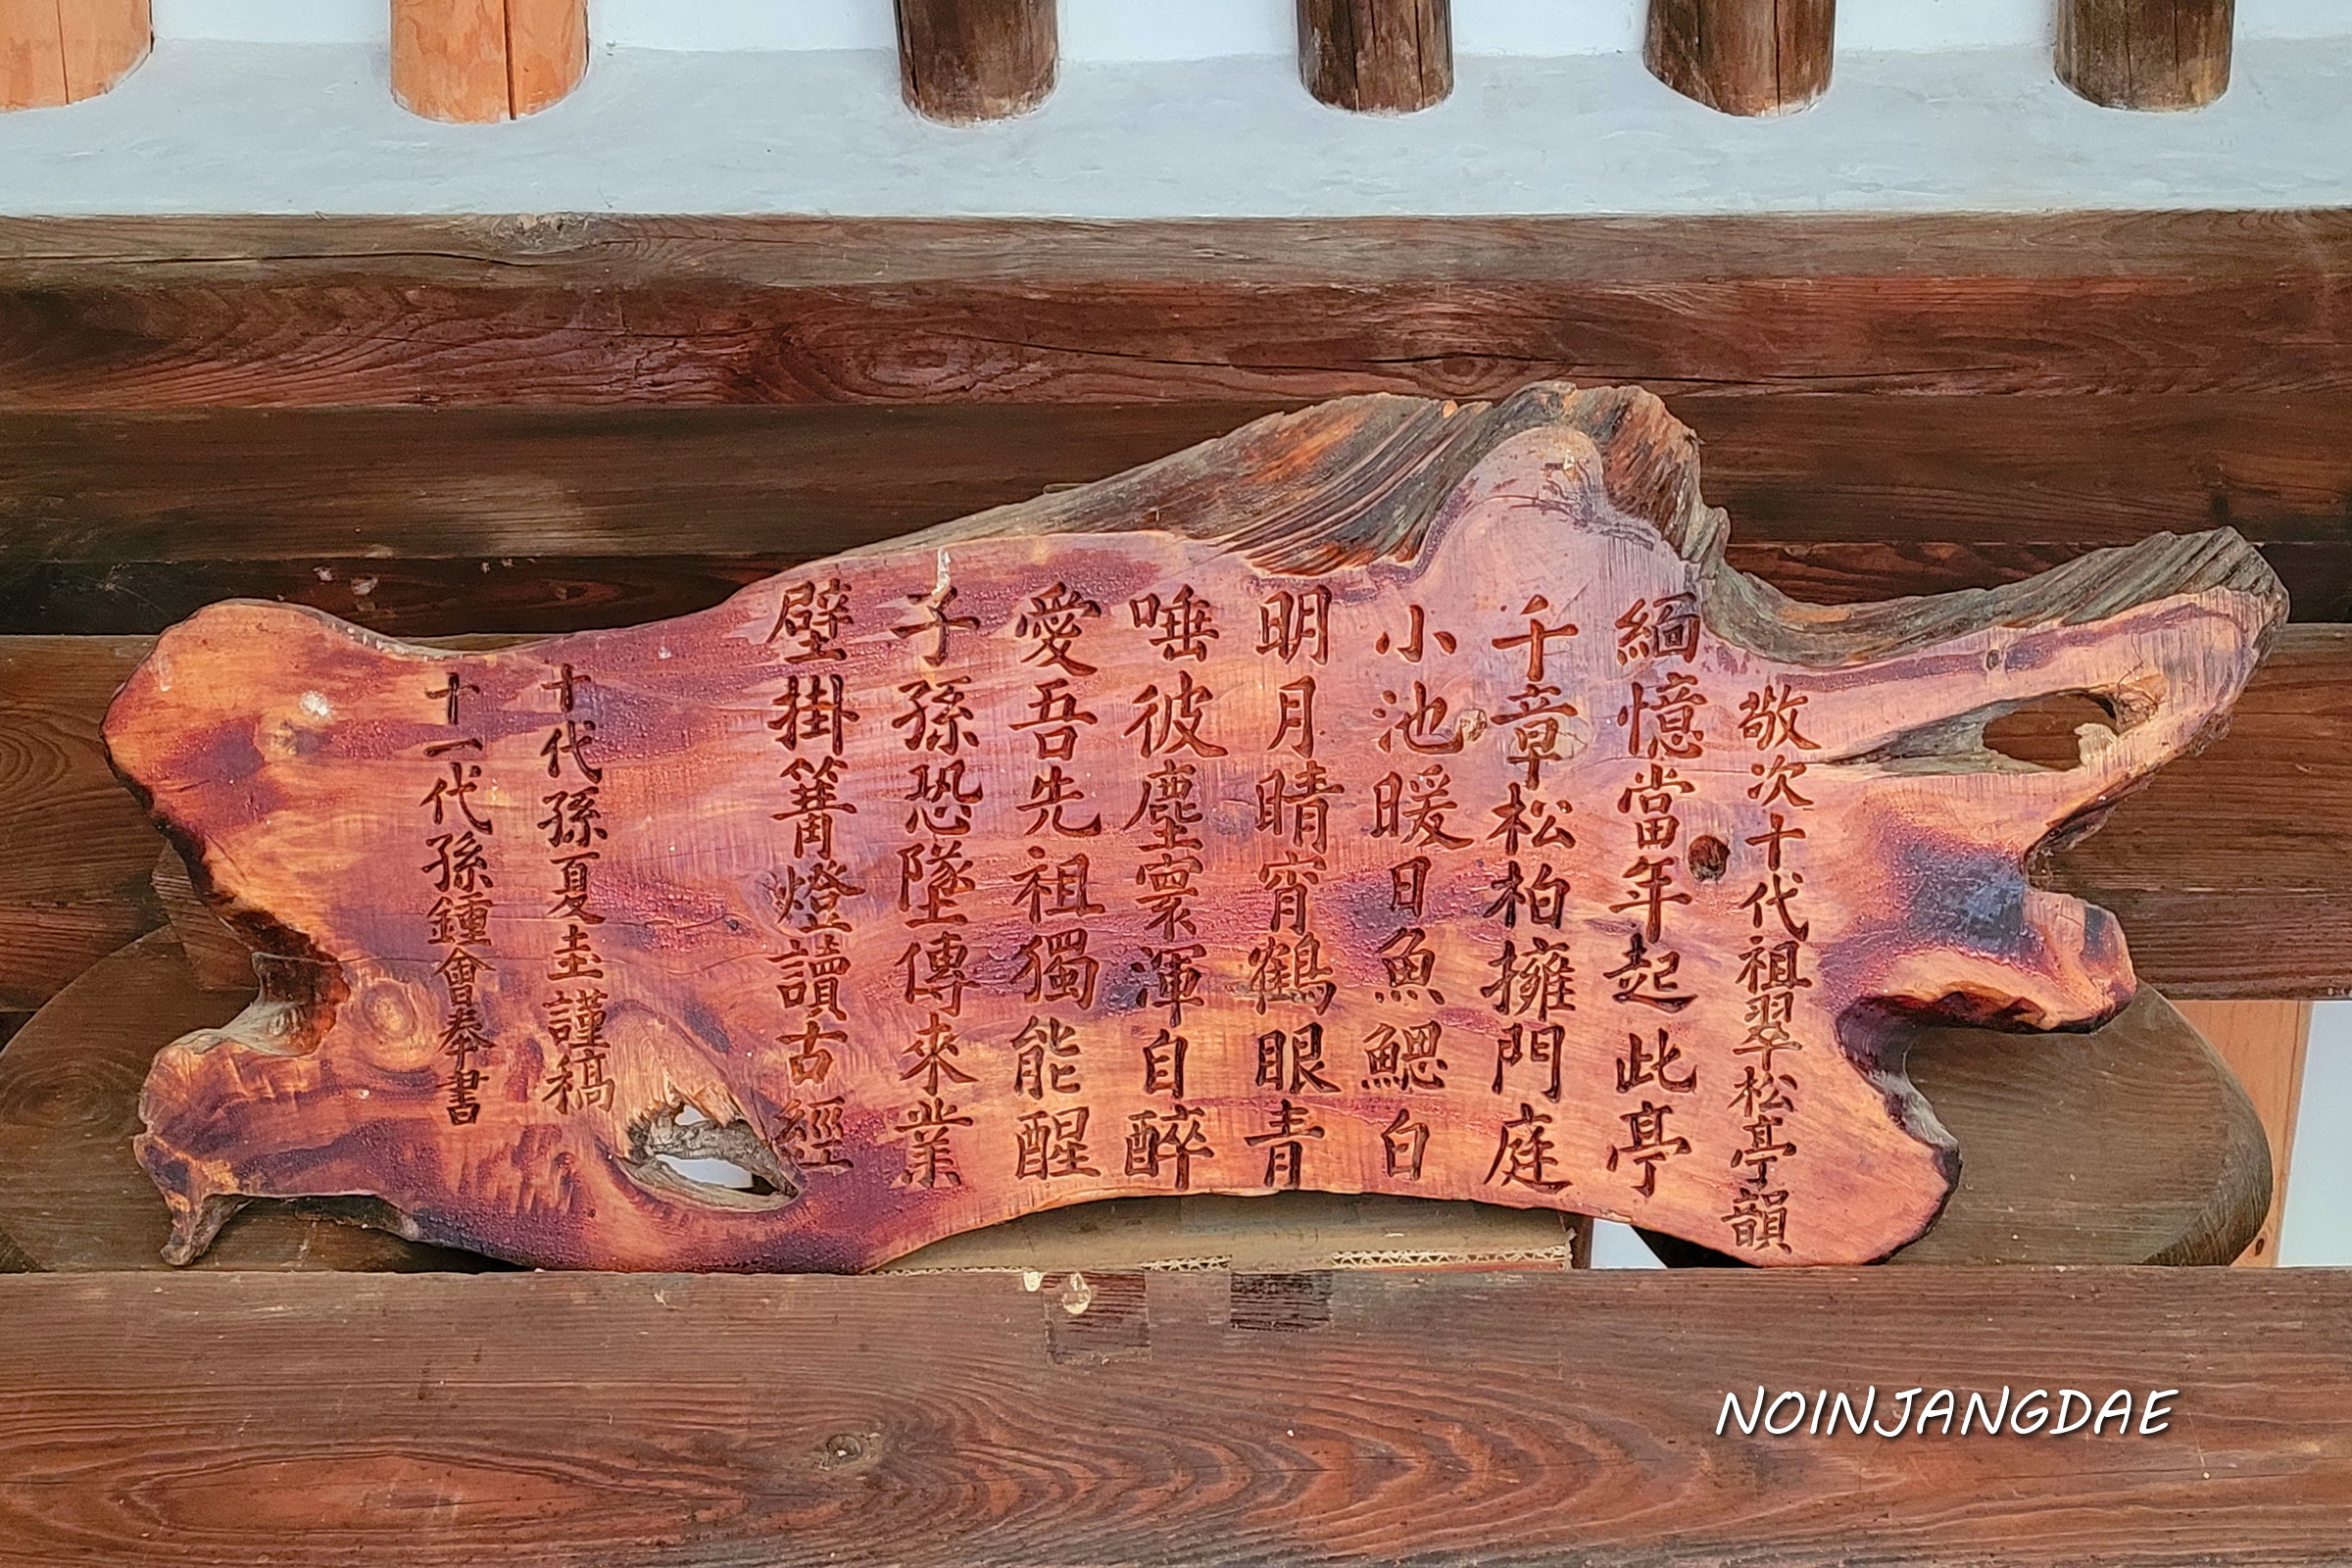 敬次十代祖翠松亭韻
緬憶當年起此亭
千章松柏擁門庭
小池暖日魚鰓白
明月晴宵鶴眼青
唾彼塵寰渾自醉
愛吾先祖獨能醒
子孫恐墜傳來業
壁掛篝燈讀古經
十代孫夏圭謹稿
十一代孫鍾會奉書
NOINJANGDAE